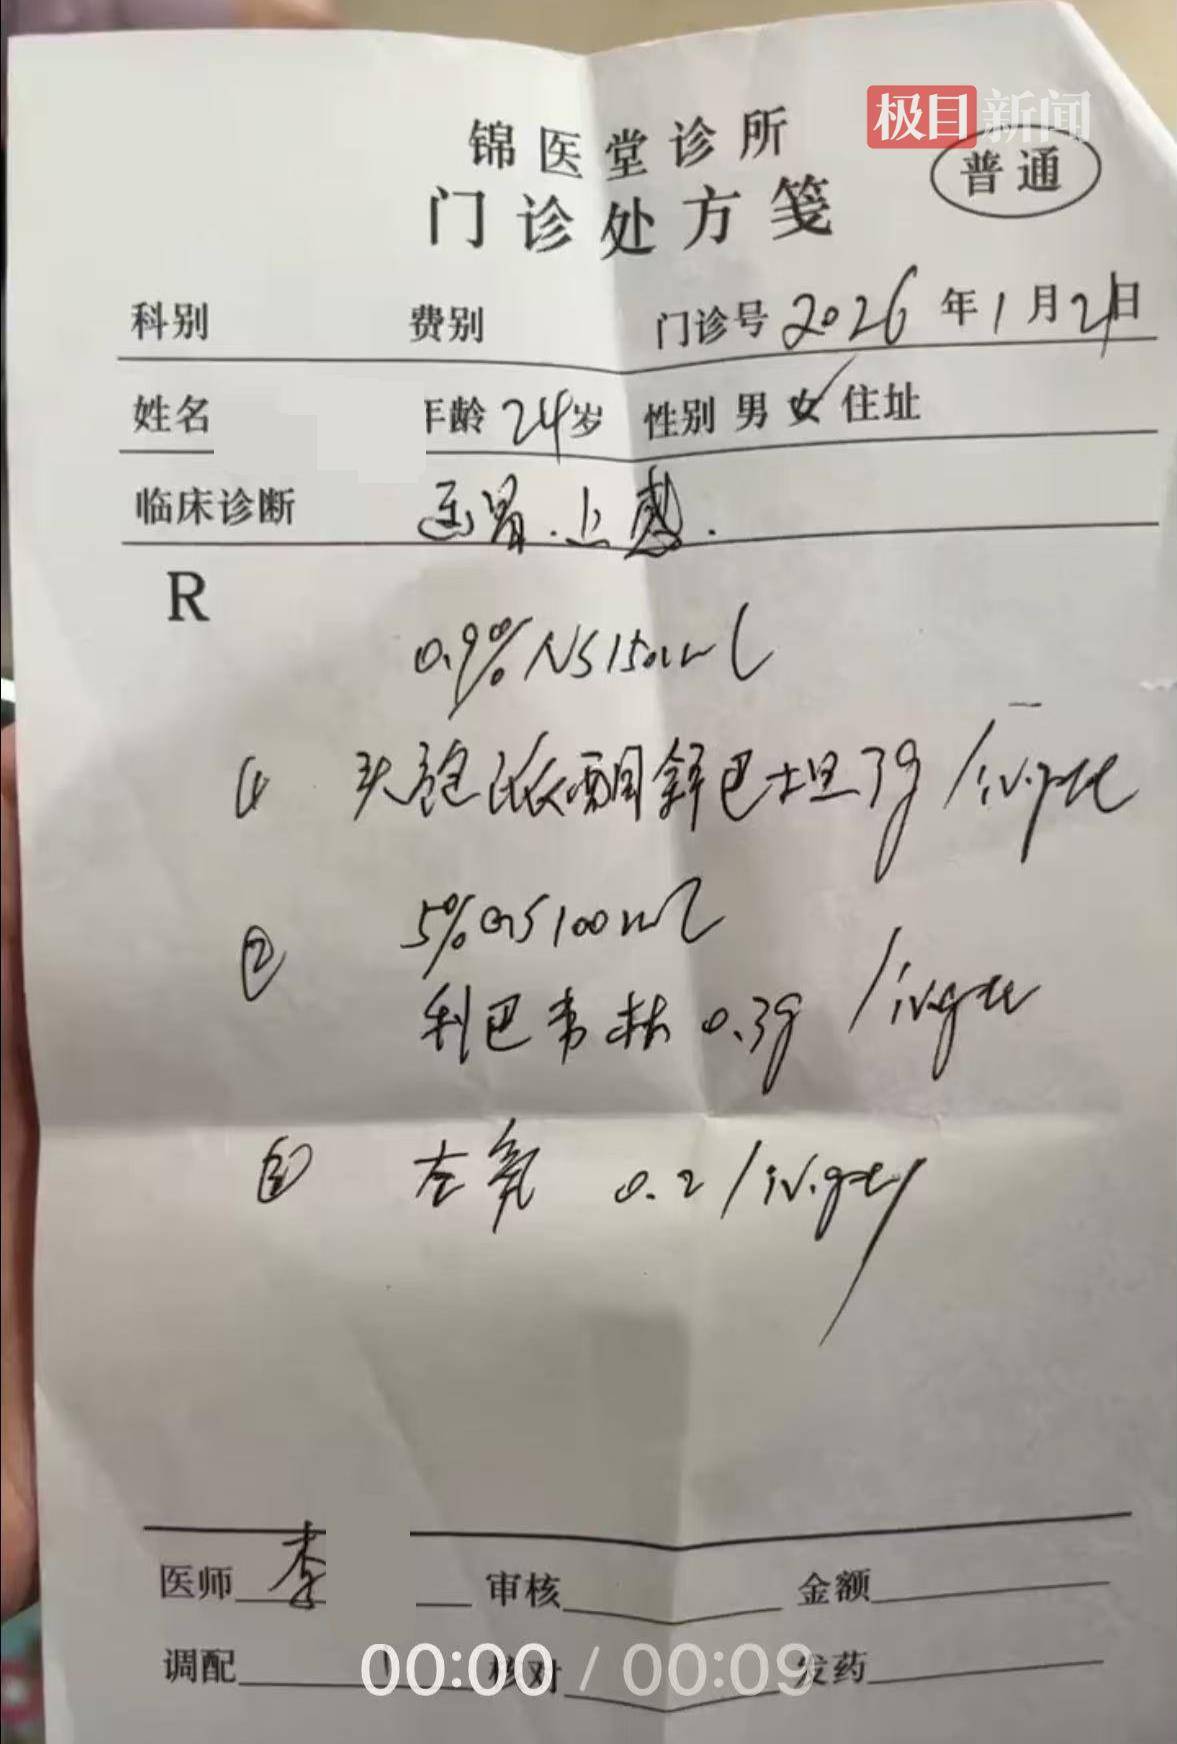 极目新闻
锦医堂诊所
普通
门诊处方笺
科别 费别 门诊号 2026年1月21日
姓名 年龄 24岁 性别 男 女✓ 住址
临床诊断 胃.上感.
R
0.9% NS 150ml
① 头孢哌酮舒巴坦 3g / iv.gtt
5% GS 100ml
② 利巴韦林 0.3g / iv.gtt
③ 左氧 0.2 / iv.gtt
医师 李 审核 金额
调配 核对 发药
00:00 / 00:09